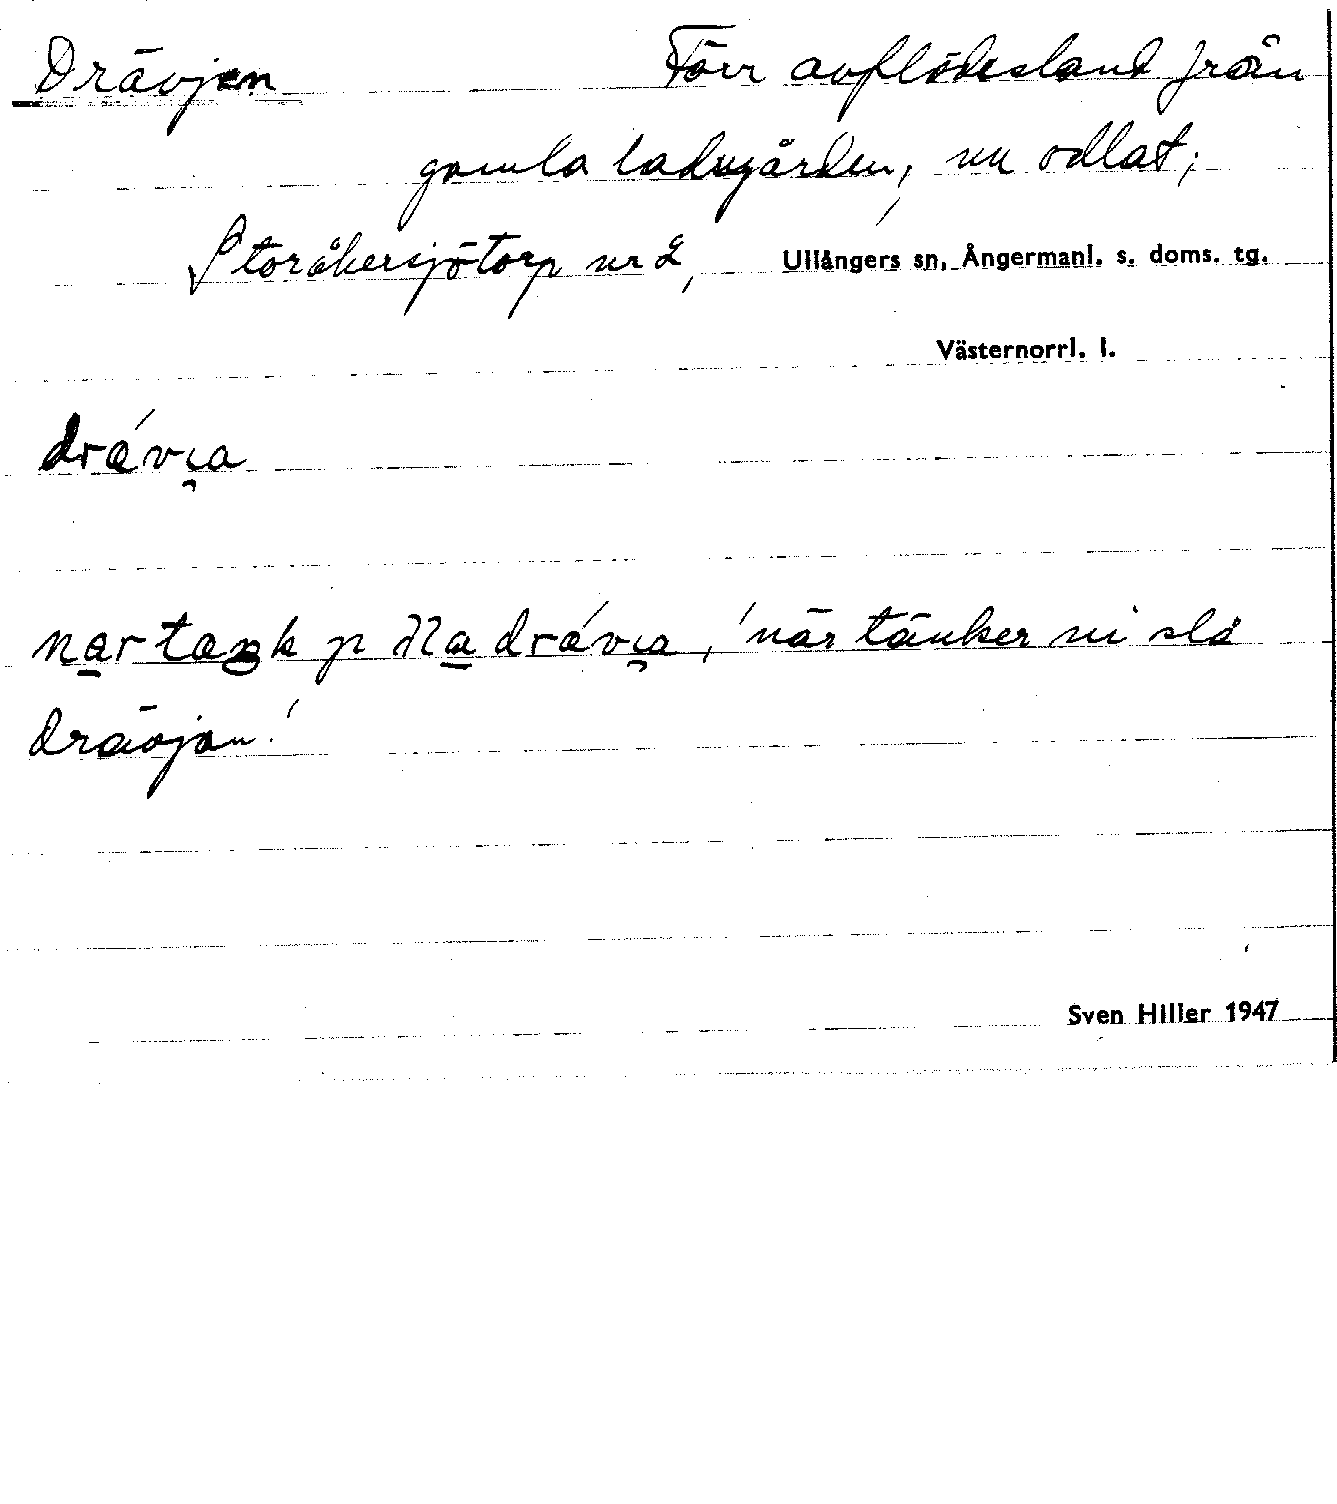 Drävjen Förr avflödesland från
gamla ladugården, nu odlat;
Storåkersjötorp nr 2, Ullångers sn, Ångermanl. s. doms. tg.
Västernorrl. l.
drävia
när tänker ni slå
drävjan!
Sven Hiller 1947